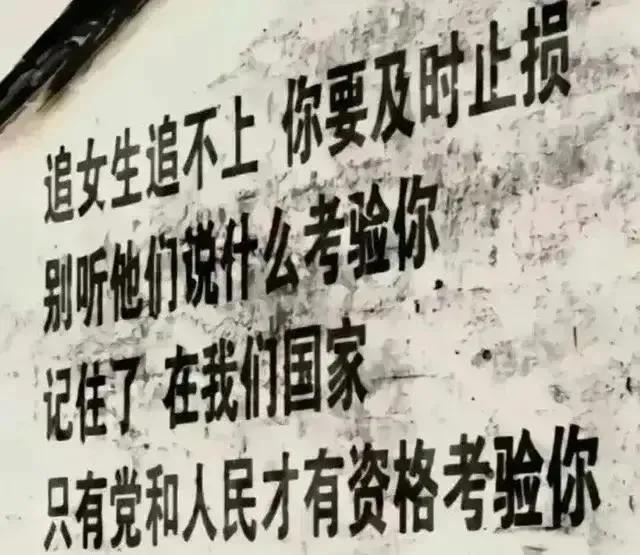 追女生追不上 你要及时止损
别听他们说什么考验你
记住了 在我们国家
只有党和人民才有资格考验你